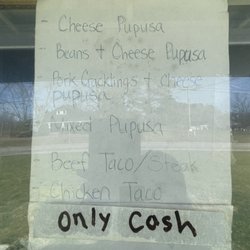 - Cheese Pupusa
- Beans + Cheese Pupusa
- Pork Cracklings + cheese
pupusa
- Mixed Pupusa
- Beef Taco/Steak
- Chicken Taco
only cash